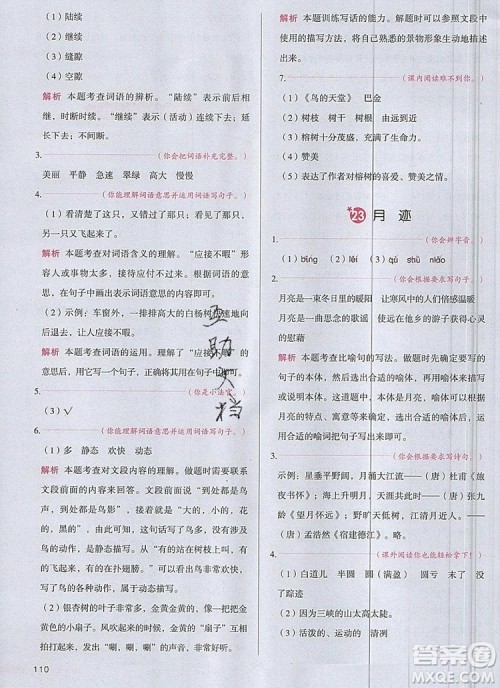 （1）陆续
（2）继续
（3）缝隙
（4）空隙
解析 本题考查词语的辨析。“陆续”表示前后相
继，时断时续。“继续”表示（活动）连续下去；
延长下去；不间断。
3. （你会把词语补充完整。）
美丽 平静 急速 翠绿 高大 慢慢
4. （你能理解词语意思并运用词语写句子。）
（1）看清楚了这只，又错过了那只，看见了那只，
另一只又飞起来了。
解析 本题考查对词语含义的理解。“应接不暇”形
容人或事物太多，接待应付不过来。理解含义后，
在句子中画出表示词语意思的词语即可。
（2）示例：窗外，一排排高大的白杨树飞速地向
后退去，让人应接不暇。
解析 本题考查词语的运用。了解“应接不暇”的
意思后，恰当运用这个词写句子即可。
5. （你是小法官。）
（3）√
6. （你能理解词语意思并运用词语写句子。）
（1）多 静态 欢快 动态
解析 本题考查对文段内容的理解。做题时需要联系
文段前面的内容。前面文段的意思“到处都是鸟
声，到处都是鸟影”，接着是“大的，小的，花
的，黑的”，前面一句中有“到处”，由此可以看出
鸟的数量之多。“有的……有的……有的……”都是在写
鸟的动作，是动态描写。从“有的站在树枝上叫，
有的飞起来，有的在扑翅膀”等语句中，可以看出
写了鸟的各种动作，表现了鸟的欢快。
（2）银杏树的叶子非常多，金灿灿的黄叶像金黄
色的小扇子。风吹动起来的时候，“扇子”互相
拍打起来，发出“唰，唰，唰”的声音，非常有趣。
110
解析 本题训练写话的能力。做题时可以参照文段中
使用的描写方法，将自己熟悉的景物形象生动地描
述出来。
7. （课内阅读难不倒你。）
（1）《鸟的天堂》 巴金
（2）树枝 树根 叶子 枝干
（3）榕树十分茂盛，充满了生命力。
（4）赞美
（5）表达了作者对榕树的喜爱、赞美之情。
23 月迹
1. （你会辨字音。）
（1）bīng （2）gē （3）qú shù niǎo
2. （你会根据要求写句子。）
月亮是一束冬日的暖阳 让寒风中的我倍感温暖
月亮是一首思念的歌谣 给远在他乡的游子家人般
的慰藉
解析 本题考查比喻句的写法。做题时要照应所给句
子的本体，然后寻找合适的喻体，喻体可以是具体
的事物，也可以是抽象的事物。根据自己的想象，选择恰当
月亮的特点，选择恰当的喻体把句子补充完整。
3. （你会根据要求写诗句。）
示例：星垂平野阔，月涌大江流。（唐）杜甫《旅
夜书怀》 海上生明月，天涯共此时。（唐）张九
龄《望月怀远》 野旷天低树，江清月近人。
（唐）孟浩然《宿建德江》
4. （课外阅读你也能轻松拿下！）
（1）白道儿 半圆 圆（满盈） 亏 末 没
了踪迹
（2）因为三峡的满月太亮了。
（3）活泼、运动的月亮。
互助文档